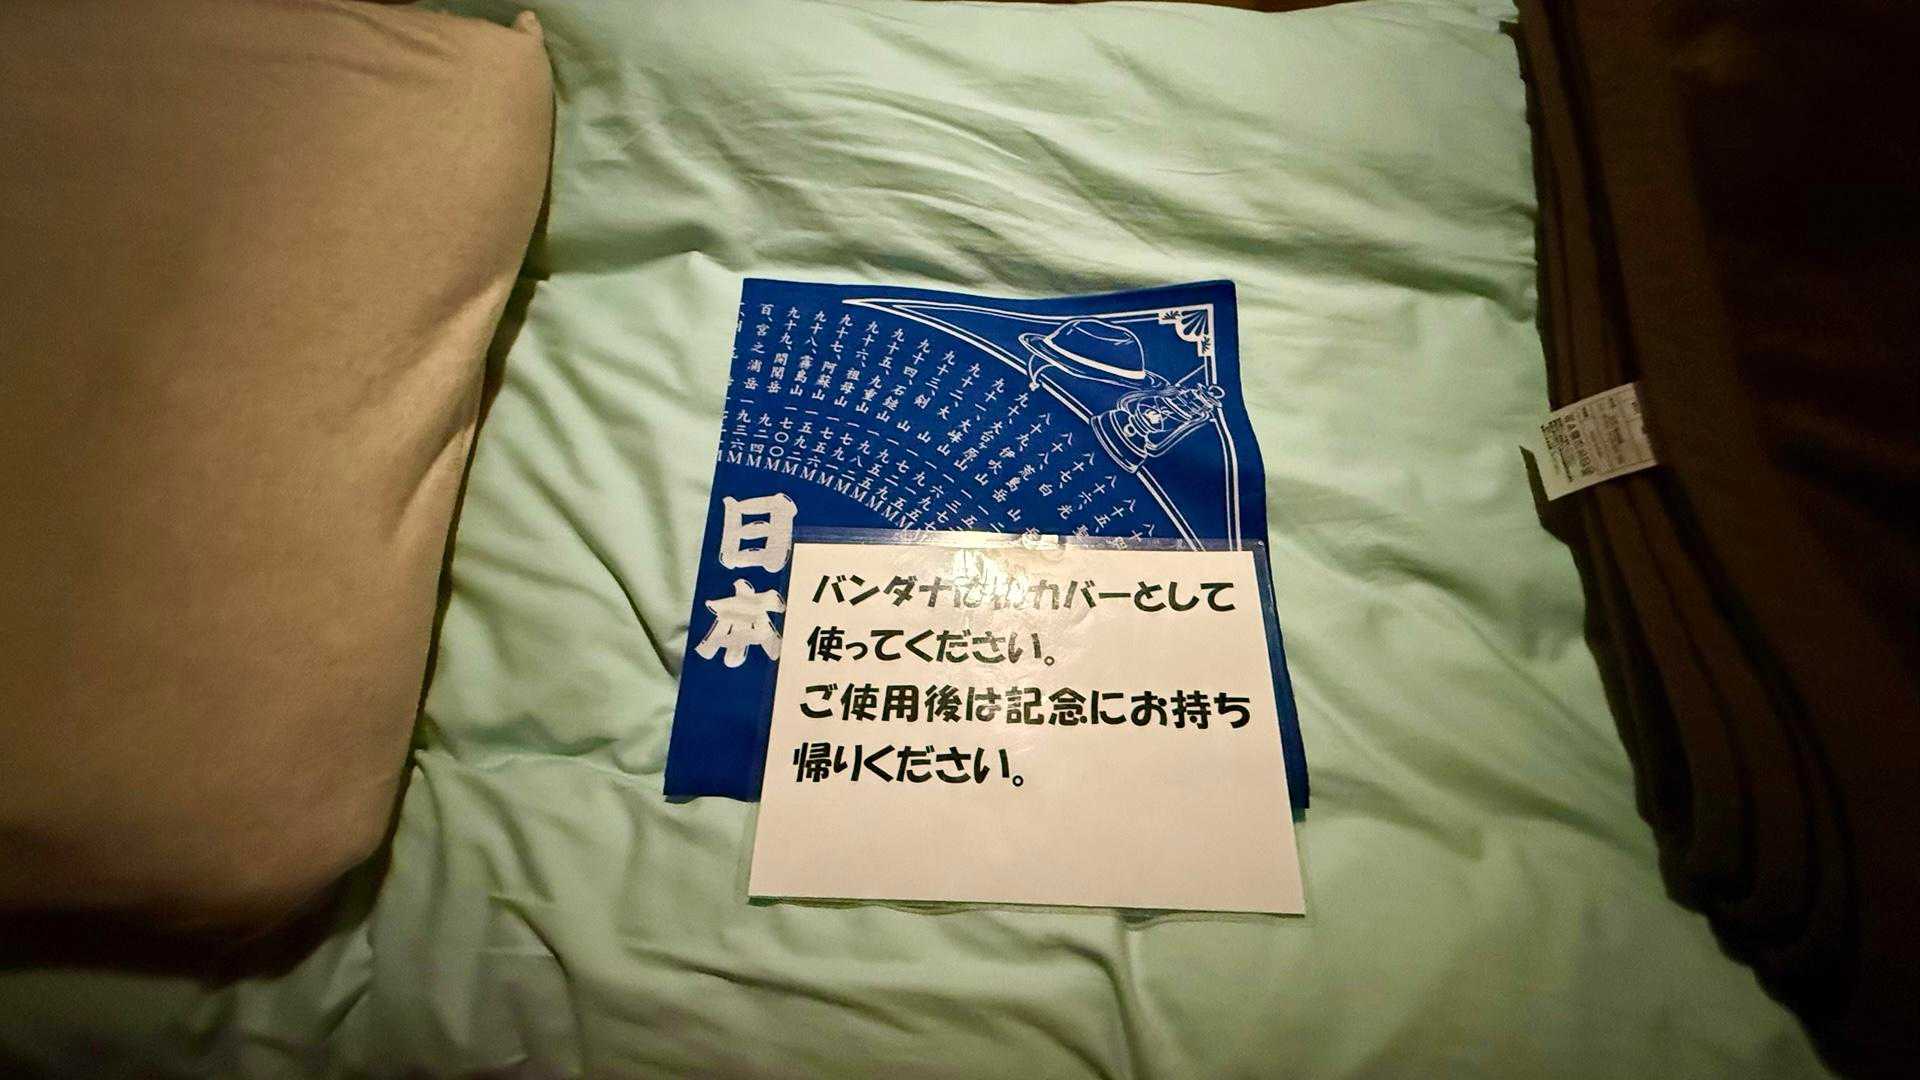 八十七、光
八十八、白
八十九、荒島岳
九十、伊吹山
九十一、大台ヶ原山
九十二、大峰山
九十三、剣山
九十四、石鎚山
九十五、九重山
九十六、祖母山
九十七、阿蘇山
九十八、霧島山
九十九、開聞岳
百、宮之浦岳
日本
バンダナは枕カバーとして
使ってください。
ご使用後は記念にお持ち
帰りください。